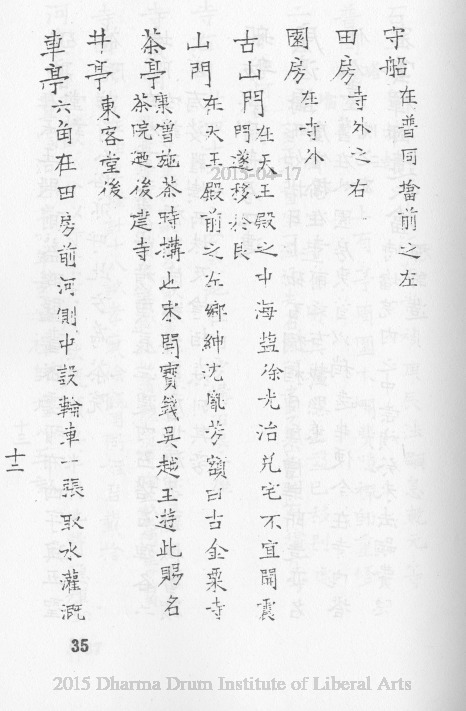 守船 在普同塔前之左
田房 寺外之右
園房 在寺外
古山門 在天王殿之中海盐徐光治兆宅不宜開震
門遂移於艮
山門 在天王殿前之左鄉紳沈胤芳額曰古金粟寺
茶亭 康僧施茶時搆也宋開寶錢吳越王遊此賜名
茶院迺後建寺
井亭 東客堂後
車亭 六角在田房前河側中設輪車一張取水灌溉
十二
2015-04-17
35
2015 Dharma Drum Institute of Liberal Arts